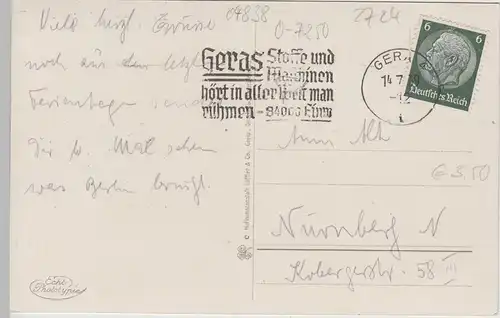 04838
0-7250
2724
Viele herzl. Grüsse
noch aus den letzten
Ferientagen
Dir b. Mal sehen
was Berlin bringt.
Geras Stoffe und
Maschinen
hört in aller Welt man
rühmen - 84000 Einw
GERA
14.7.
-12
6 6
Deutsches Reich
€ 3.50
Nürnberg N
Kobergerstr. 58 III
Echte
Phototypie